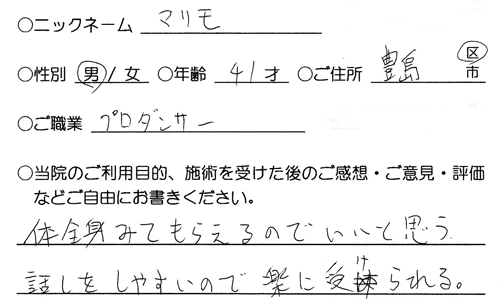 ○ニックネーム マリモ
○性別 男 / 女 ○年齢 41才 ○ご住所 豊島 区
市
○ご職業 プロダンサー
○当院のご利用目的、施術を受けた後のご感想・ご意見・評価
などご自由にお書きください。
体全身みてもらえるのでいいと思う
話しをしやすいので楽に受けられる。